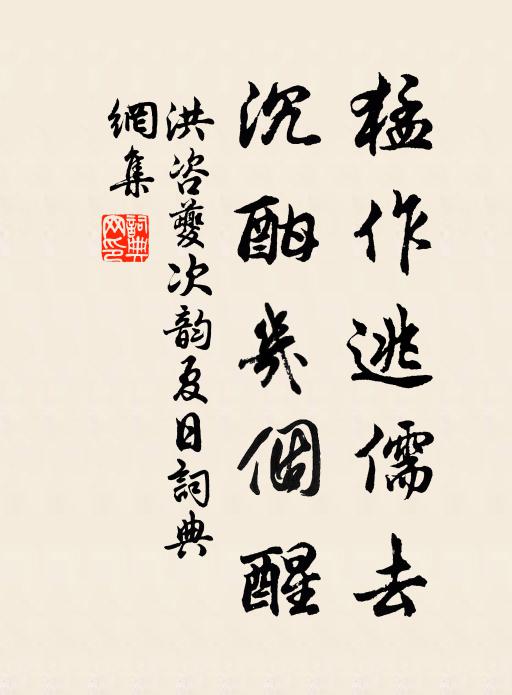 猛作逃儒去
沉酣幾個醒
洪咨夔次韵夏日詞典
網集
詞典網印